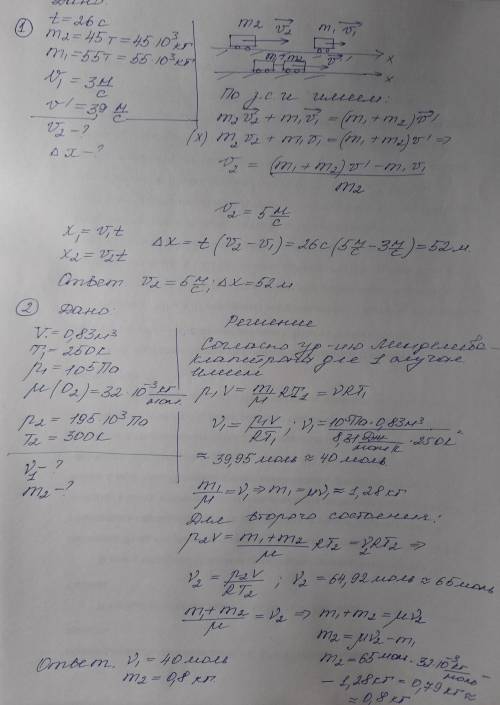 Дано:
① t = 26 с
m2 = 45 т = 45·10³ кг
m1 = 55 т = 55·10³ кг
v1 = 3 м/с
v' = 3,9 м/с
v2 - ?
Δx - ?
m2 v2 m1 v1
x
m1+m2 v'
x
По з.с.и имеем:
m2v2 + m1v1 = (m1+m2)v'
(x) m2v2 + m1v1 = (m1+m2)v' ⇒
v2 = ((m1+m2)v' - m1v1)/m2
v2 = 5 м/с
x1 = v1t
x2 = v2t
Δx = t(v2-v1) = 26с(5 м/с - 3 м/с) = 52 м.
Ответ v2 = 5 м/с; Δx = 52 м
② Дано:
V = 0,83 м³
T1 = 250 К
p1 = 10⁵ Па
μ(O2) = 32·10⁻³ кг/моль
p2 = 195·10³ Па
T2 = 300 К
ν1 - ?
m2 - ?
Решение
Согласно ур-ию Менделеева-
Клапейрона для 1 случая
имеем
p1V = m1/μ RT1 = νRT1
ν1 = p1V/RT1; ν1 = 10⁵Па·0,83м³/(8,31 Дж/моль·К ·250К)
≈ 39,95 моль ≈ 40 моль
m1/μ = ν1 ⇒ m1 = μν1 ≈ 1,28 кг
Для второго состояния:
p2V = (m1+m2)/μ RT2 = ν2RT2 ⇒
ν2 = p2V/RT2; ν2 = 64,92 моль ≈ 65 моль
(m1+m2)/μ = ν2 ⇒ m1+m2 = μν2
m2 = μν2 - m1
m2 = 65 моль·32·10⁻³ кг/моль
- 1,28 кг = 0,79 кг ≈
≈ 0,8 кг
Ответ. ν1 = 40 моль
m2 = 0,8 кг.